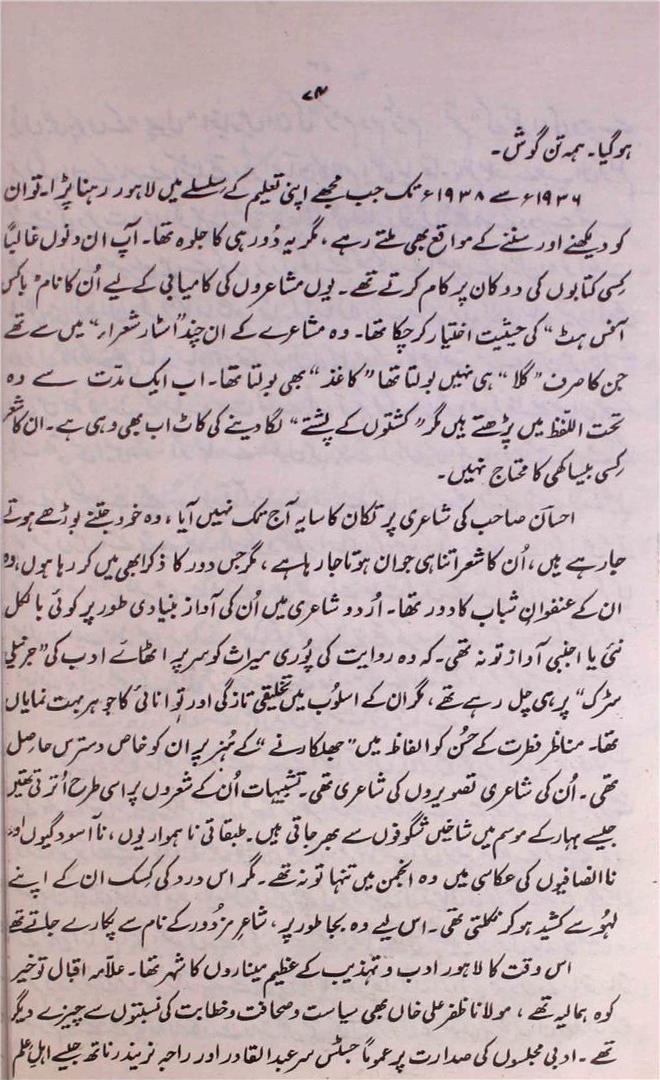 ۷۴
ہوگیا۔ ہمہ تن گوش۔
۱۹۳۶ء سے ۱۹۳۸ء تک جب مجھے اپنی تعلیم کے سلسلے میں لاہور رہنا پڑا۔ تو ان
کو دیکھنے اور سننے کے مواقع بھی ملتے رہے، مگر یہ دُور ہی کا جلوہ تھا۔ آپ ان دنوں غالباً
کسی کتابوں کی دوکان پر کام کرتے تھے۔ یوں مشاعروں کی کامیابی کے لیے اُن کا نام ”باکس
آفس ہٹ“ کی حیثیت اختیار کر چکا تھا۔ وہ مشاعرے کے ان چند ”اسٹار شعراء“ میں سے تھے
جن کا صرف ”گلا“ ہی نہیں بولتا تھا ”کاغذ“ بھی بولتا تھا۔ اب ایک مدّت سے وہ
تحت اللّفظ میں پڑھتے ہیں مگر ”کشتوں کے پشتے“ لگا دینے کی کاٹ اب بھی وہی ہے۔ ان کا شعر
کسی بیساکھی کا محتاج نہیں۔
احسان صاحب کی شاعری پر تکان کا سایہ آج تک نہیں آیا، وہ خود جتنے بوڑھے ہوتے
جا رہے ہیں، اُن کا شعر اتنا ہی جوان ہوتا جا رہا ہے، مگر جس دور کا ذکر ابھی میں کر رہا ہوں، وہ
ان کے عنفوانِ شباب کا دور تھا۔ اُردو شاعری میں اُن کی آواز بنیادی طور پر کوئی بالکل
نئی یا اجنبی آواز تو نہ تھی۔ کہ وہ روایت کی پُوری میراث کو سر پر اٹھائے ادب کی ”جرنیلی
سڑک“ پر ہی چل رہے تھے، مگر ان کے اسلوب میں تخلیقی تازگی اور توانائی کا جوہر بہت نمایاں
تھا۔ مناظرِ فطرت کے حُسن کو الفاظ میں ”جھلکارنے“ کے ہُنر پر ان کو خاص دسترس حاصل
تھی۔ اُن کی شاعری تصویروں کی شاعری تھی۔ تشبیہات اُن کے شعروں پر اسی طرح اُترتی تھیں
جیسے بہار کے موسم میں شاخیں شگوفوں سے بھر جاتی ہیں۔ طبقاتی ناہمواریوں، ناآسودگیوں اور
ناانصافیوں کی عکاسی میں وہ انجمن میں تنہا تو نہ تھے۔ مگر اس درد کی کسک ان کے اپنے
لہُو سے کشید ہو کر نکلتی تھی۔ اس لیے وہ بجا طور پر، شاعرِ مزدور کے نام سے پکارے جاتے تھے
اس وقت کا لاہور ادب و تہذیب کے عظیم میناروں کا شہر تھا۔ علامہ اقبال تو خیر
کوہ ہمالیہ تھے، مولانا ظفر علی خاں بھی سیاست و صحافت و خطابت کی نسبتوں سے چیزے دیگر
تھے۔ ادبی مجلسوں کی صدارت پر عموماً جسٹس سر عبدالقادر اور راجہ نریندر ناتھ جیسے اہلِ علم